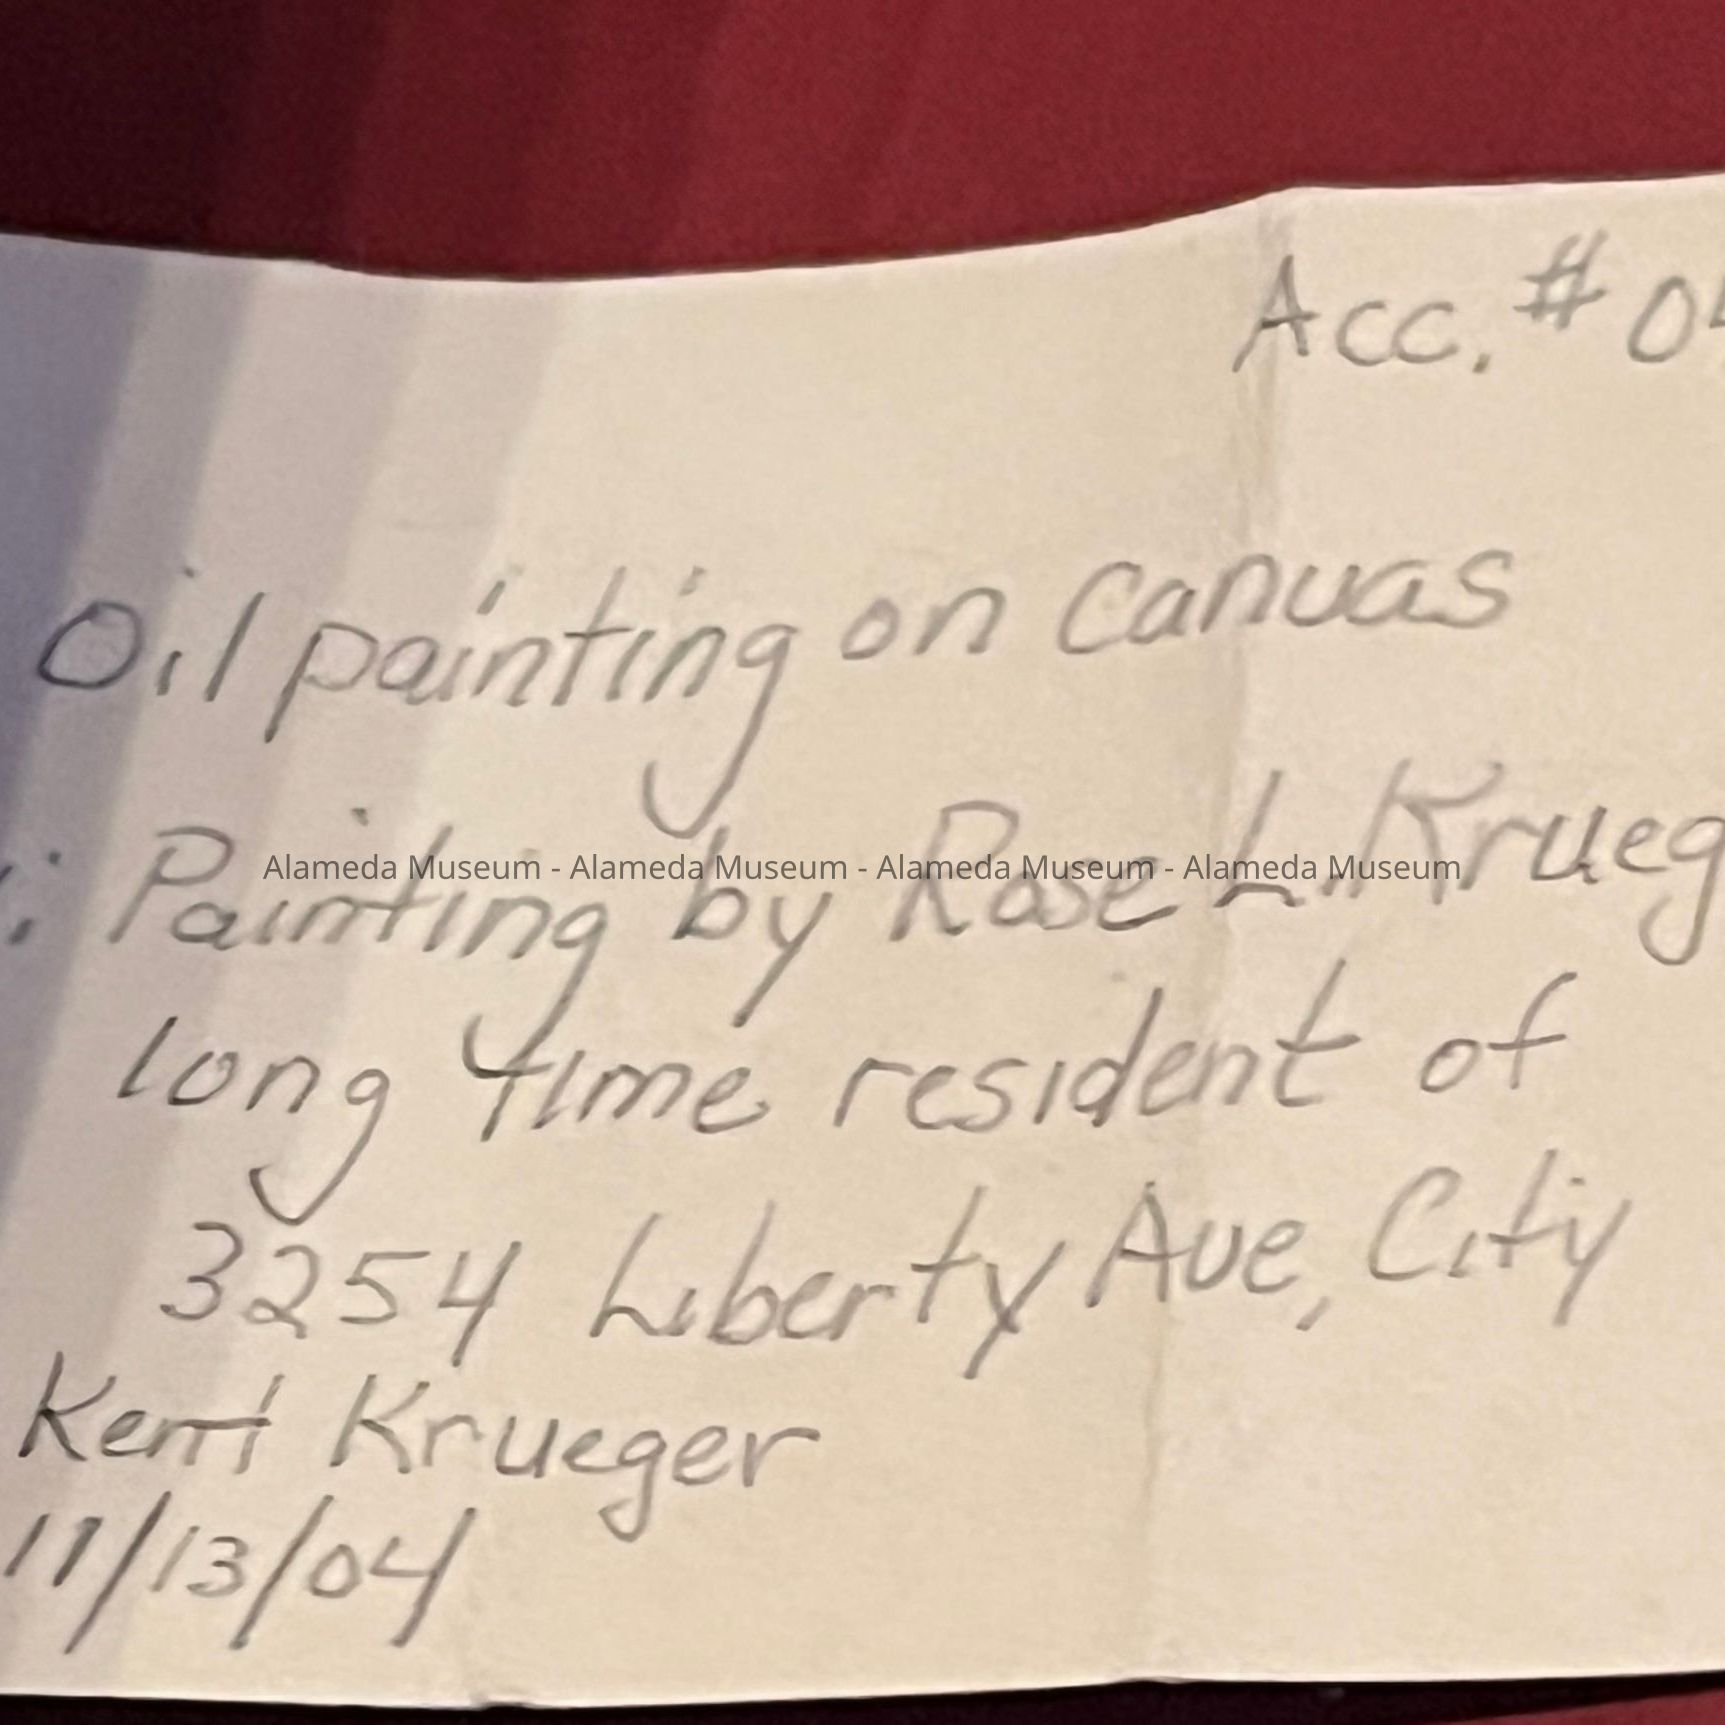 Acc. # 04
Oil painting on canvas
: Painting by Rose L. Krueg
Alameda Museum - Alameda Museum - Alameda Museum - Alameda Museum
long time resident of
3254 Liberty Ave, City
Kent Krueger
11/13/04